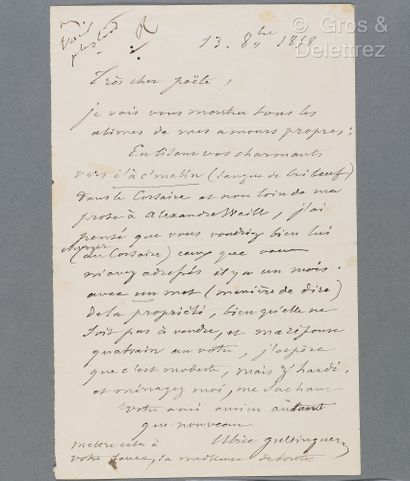 © Gros &
Delettrez
13. 8bre 1858
Très cher poëte,
je vais vous montrer tous les
abimes de mes amours propres:
En lisant vos charmants
vers (langue de
dans le Corsaire et non loin de ma
prose à Alexandre Weill, j'ai
pensé que vous voudriez bien lui
envoyer
(au Corsaire) ceux que vous
m'avez adressés il y a un mois.
avec un mot (manière de dire)
de la propriété, bien qu'elle ne
soit pas à vendre, et ma réponse
quatrain au votre, j'espère
que c'est modeste, mais hardi.
et ménagez moi, me sachant
votre ami ancien autant
que nouveau
Ulric Guttinguer
mettre cela à
votre sauce, la meilleure de toutes